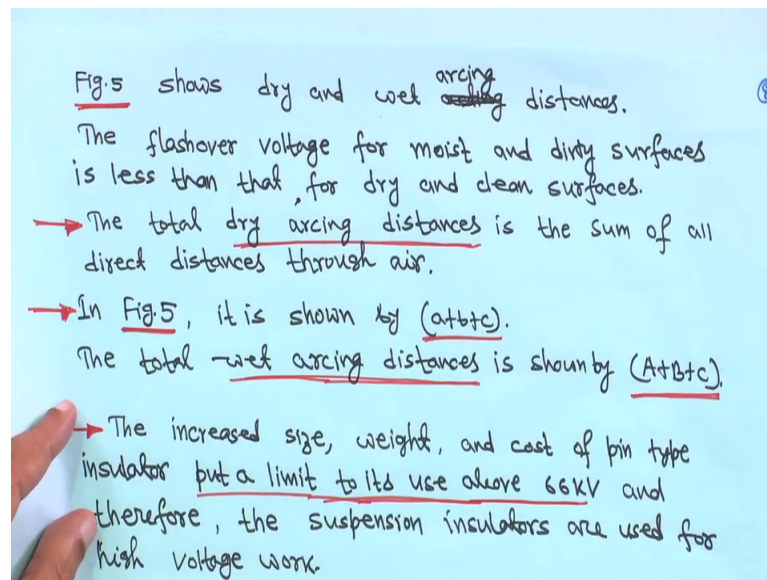 Fig.5 shows dry and wet arcing distances.
The flashover voltage for moist and dirty surfaces
is less than that, for dry and clean surfaces.
→ The total dry arcing distances is the sum of all
direct distances through air.
→ In Fig.5, it is shown by (a+b+c).
The total wet arcing distances is shown by (A+B+C).
→ The increased size, weight, and cost of pin type
insulator but a limit to its use above 66KV and
therefore, the suspension insulators are used for
high voltage work.